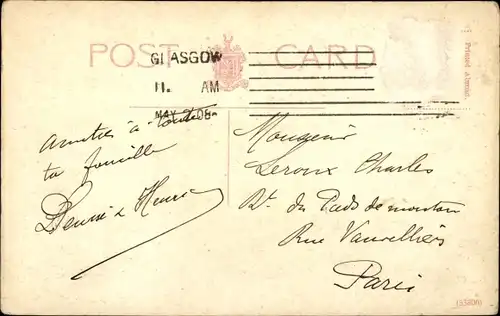 POST CARD
Printed Abroad.
GLASGOW
11. AM
MAY 2 08
amitiés à toute
ta famille
Denise & Henri
Monsieur
Leroux Charles
Rt. du Pieds de mouton
Rue Vauvilliers
Paris